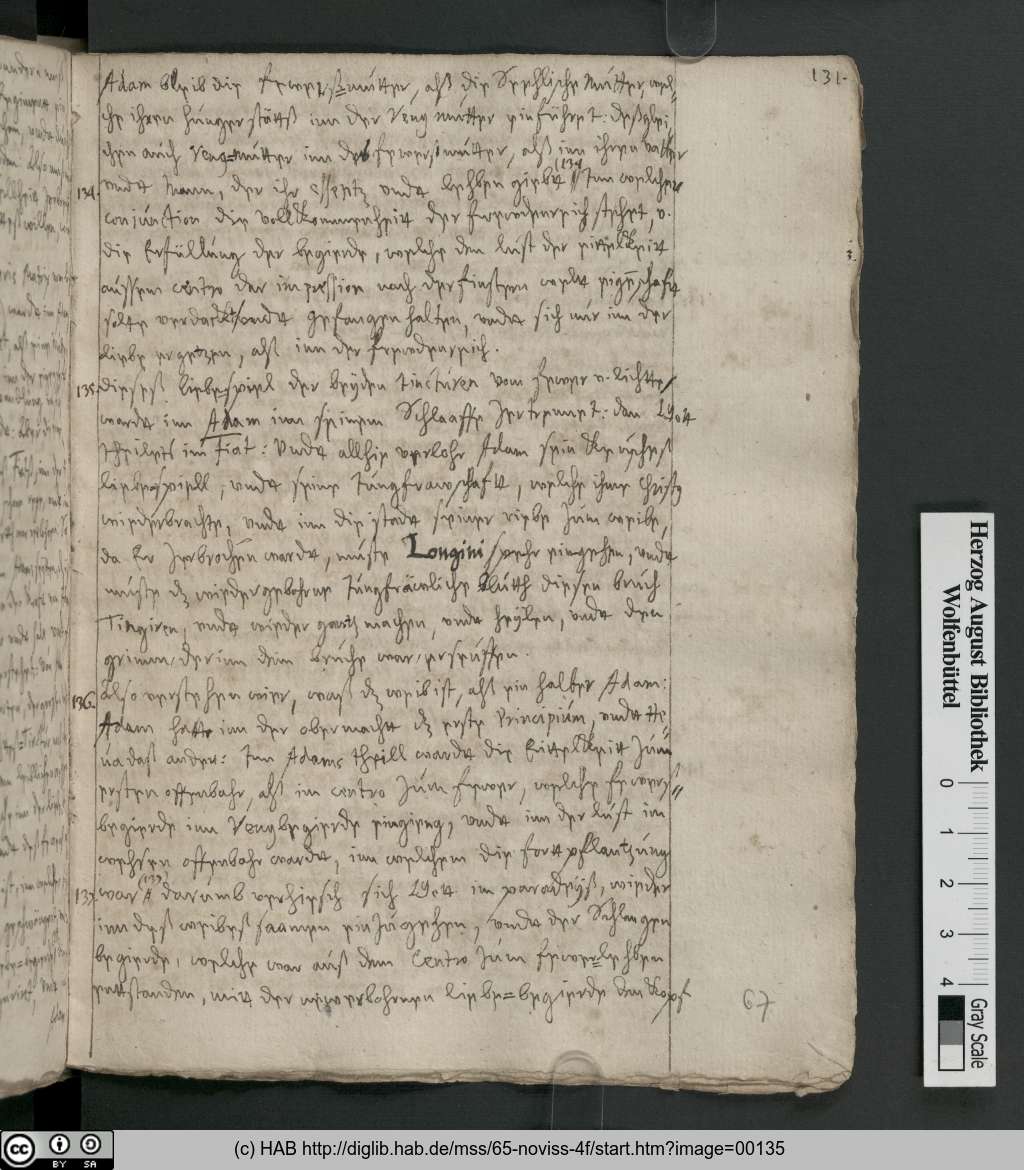 131.
Adam bleib die fewerß=mutter, alß die Seehlische Mutter, wel=
che ihren hunger stätß inn der Venus mutter einführet: deßglei=
chen auch Venus=mutter inn der fewerß mutter, alß inn ihren Vatter
134. undt Mann, der ihr essentz undt lephben giebet (134 Inn welcher
conjunction die vollkommenheit der frewdenreich stehet, v.
die Erfüllung der begierde, welche den lust der eitelkeit
aussem centro der impression nach der finstern weldt eigenschaft
solte verdackt undt gefangen halten, undt sich nur in der
liebe ergetzen, alß inn der frewdenreich.
135. dieseß liebe=spiel der beyden tincturen vom fewer v. lichtte
wardt inn Adam inn seinem Schlaaffe Zertrennet: den Gott
theilets im Fiat: Undt allhie verlohr Adam sein keuscheß
liebespiell, undt seine Jungfrawschafft, welche ihme Christus
wiederbrachte, undt inn die stadt seiner riebe Zum weibe,
da Er Zerbrochen wardt, muste Longini speehr eingehen, undt
muste dz wiedergebohrne Jungfräwliche bluth diesen bruch
Tingiren, undt wieder gantz machen, undt heylen, undt den
grimm, der inn dem bruche war, erseuffen.
136. Also verstehen wier, waß dz weib ist, alß ein halber Adam:
Adam hatte inn der obermacht dz erste Principium, undt He=
ua daß ander: Inn Adams theill wardt die Eittelkeit Zum
ersten offenbahr, alß im centro Zum fewer, welche fewers=
begierde inn Venusbegierde eingieng, undt inn der lust im
wehsen offenbahr wardt, inn welchem die fortpflantzung
137. war (137) darumb verhiesch sich Gott im paradeyß, wieder
inn deß weibeß saamen einZugehen, undt der Schlangen
begierde, welche war auß dem Centro Zum fewer=lephben
entstanden, mit der newgebohrnen liebe=begierde den kopf
67
Herzog August Bibliothek
Wolfenbüttel
0 1 2 3 4 Gray Scale
cc BY SA
(c) HAB http://diglib.hab.de/mss/65-noviss-4f/start.htm?image=00135